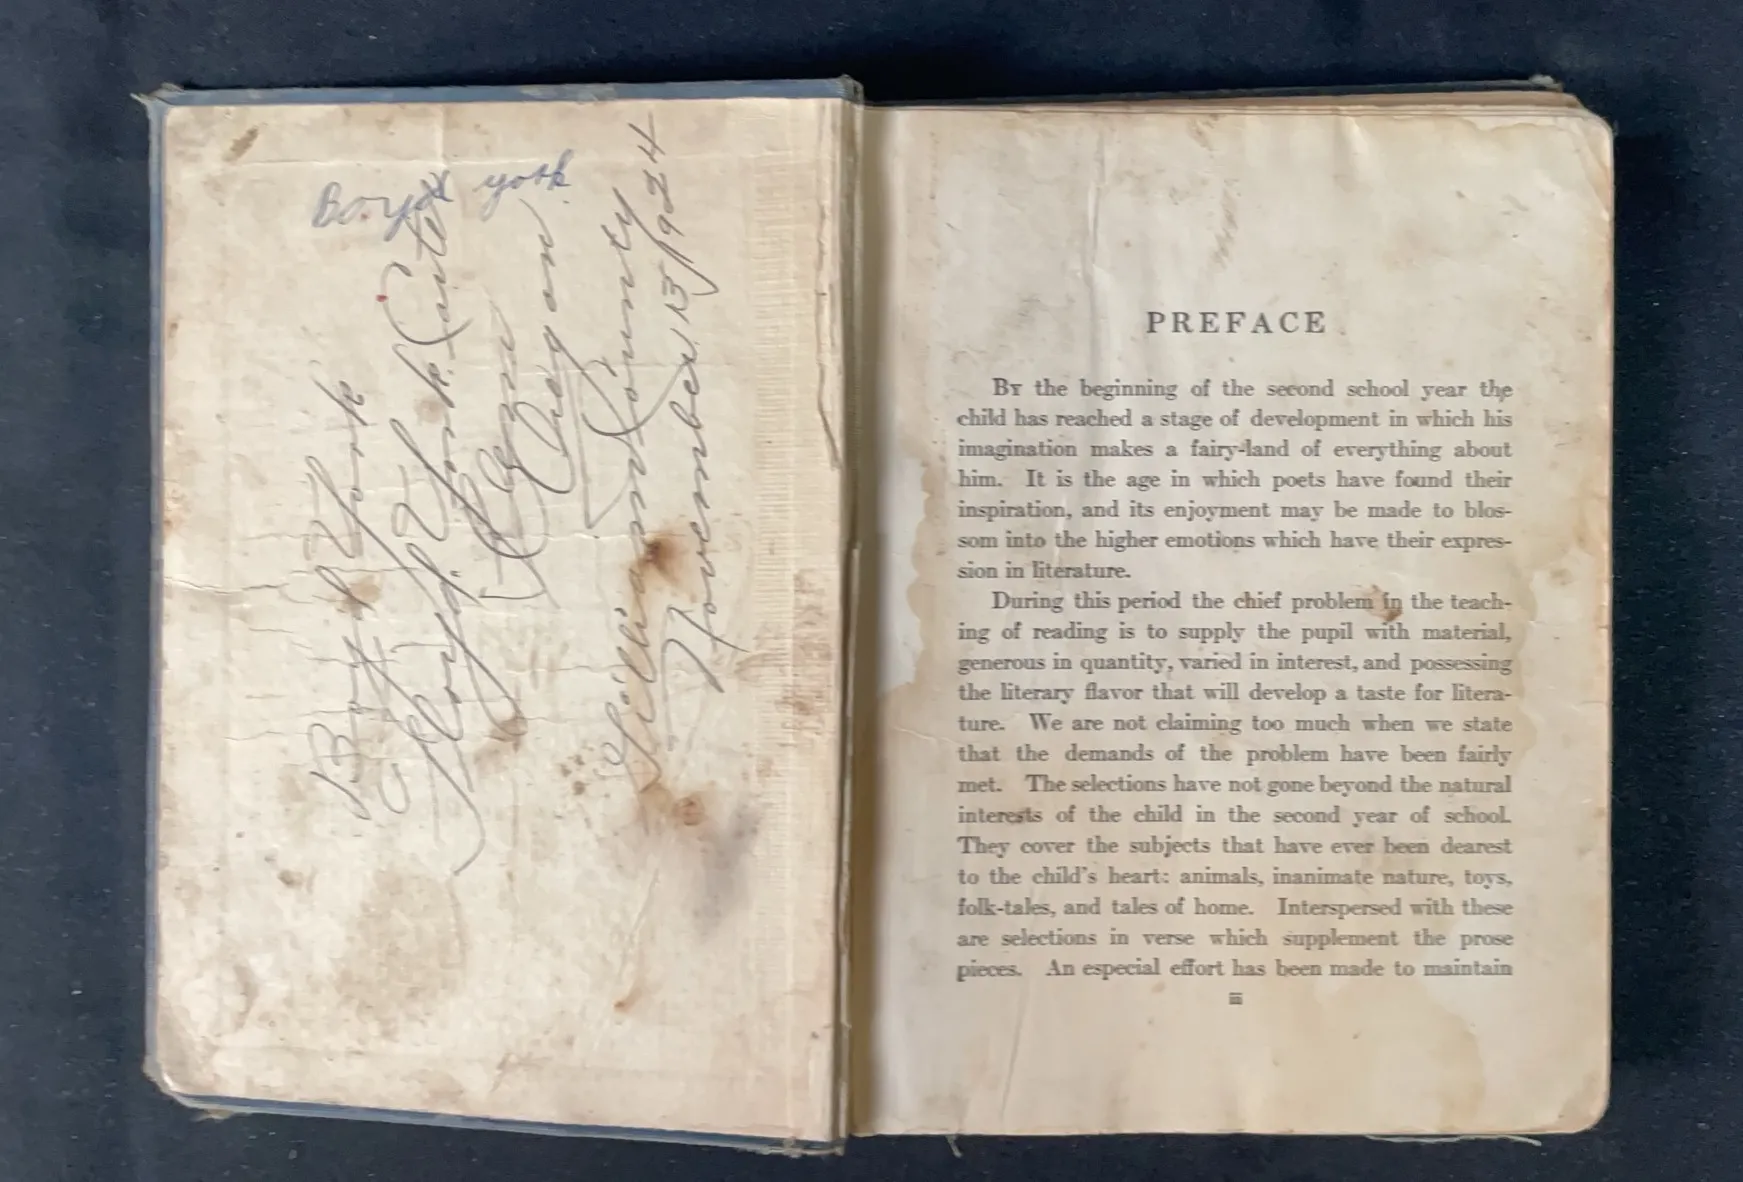 Boyd york
Boyd York
Floyd York
Olex
Oregon
Gilliam County
November 13, 1924
PREFACE
By the beginning of the second school year the
child has reached a stage of development in which his
imagination makes a fairy-land of everything about
him. It is the age in which poets have found their
inspiration, and its enjoyment may be made to blos-
som into the higher emotions which have their expres-
sion in literature.
During this period the chief problem in the teach-
ing of reading is to supply the pupil with material,
generous in quantity, varied in interest, and possessing
the literary flavor that will develop a taste for litera-
ture. We are not claiming too much when we state
that the demands of the problem have been fairly
met. The selections have not gone beyond the natural
interests of the child in the second year of school.
They cover the subjects that have ever been dearest
to the child's heart: animals, inanimate nature, toys,
folk-tales, and tales of home. Interspersed with these
are selections in verse which supplement the prose
pieces. An especial effort has been made to maintain
iii